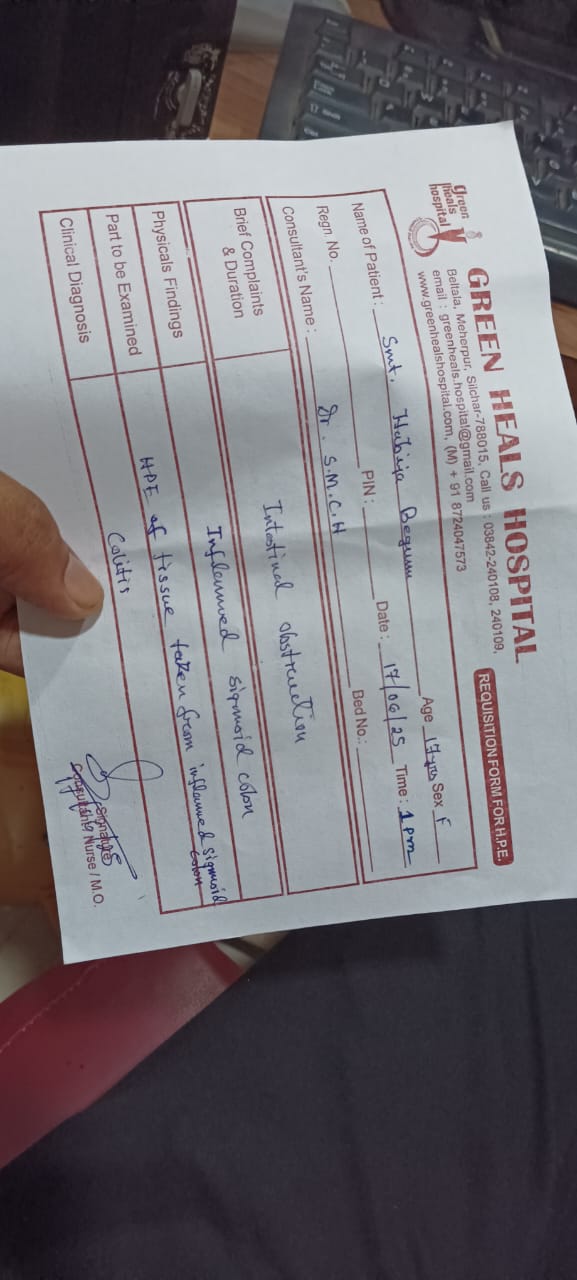 green heals hospital
GREEN HEALS HOSPITAL
Beltala, Meherpur, Silchar-788015, Call us : 03842-240108, 240109,
email : greenheals.hospital@gmail.com
www.greenhealshospital.com, (M) + 91 8724047573
REQUISITION FORM FOR H.P.E.
Name of Patient : Smt. Begum Age Sex F
Regn No. PIN : Date : 17/06/25 Time : 1 pm
Consultant's Name : Dr. S.M.C.H Bed No.:
Brief Complaints & Duration Intestinal obstruction
Physicals Findings Inflammed sigmoid colon
Part to be Examined HPE of tissue taken from inflammed sigmoid colon
Clinical Diagnosis Colitis
Signature
Consultant / Nurse / M.O.